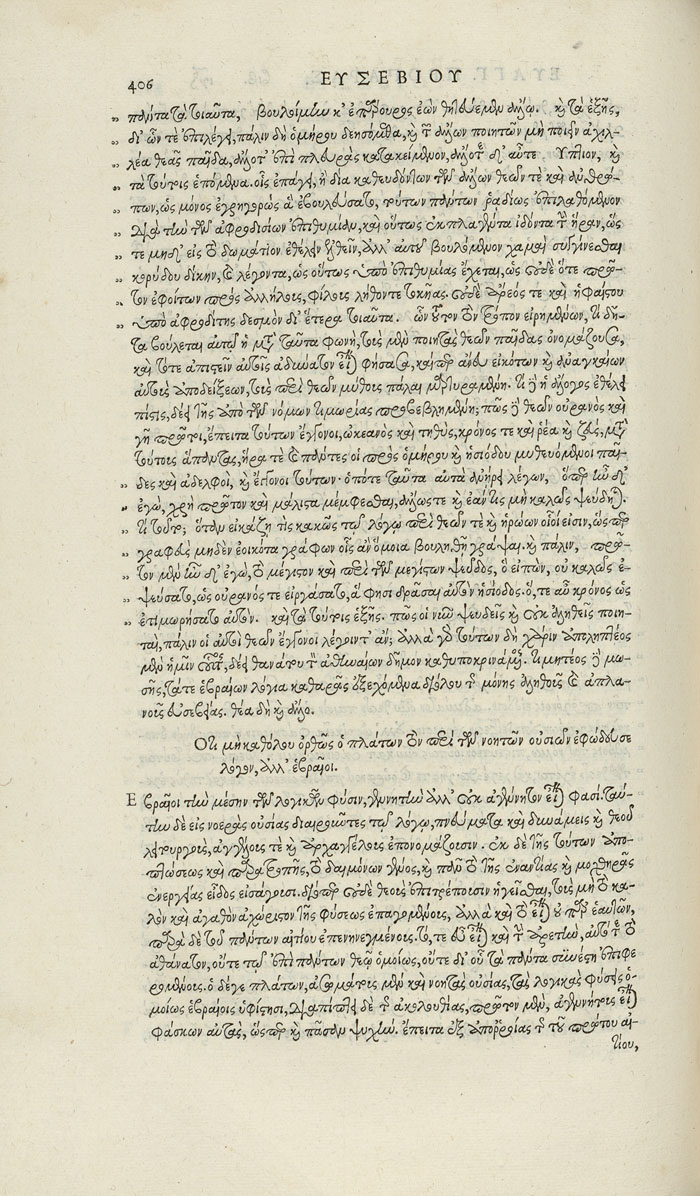 406 ΕΥΣΕΒΙΟΥ
„ πάντα τὰ τοιαῦτα, βουλοίμην κ' ἐπάρουρος ἐὼν θητευέμεν ἄλλῳ. καὶ τὰ ἑξῆς,
„ δι' ὧν τὲ ἐπιλέγει, πάλιν δὴ ὁμήρου δεησόμεθα, καὶ τῶν ἄλλων ποιητῶν μὴ ποιεῖν ἀχιλ-
„ λέα θεᾶς παῖδα, ἄλλοτ' ἐπὶ πλευρὰς κατακείμενον, ἄλλοτε δ' αὖτε Ὕπτιον, καὶ
„ τὰ τούτοις ἑπόμενα. οἷς ἐπάγει, ἢ δία καθευδόντων τῶν ἄλλων θεῶν τὲ καὶ ἀνθρώ-
„ πων, ὡς μόνος ἐγρηγορὼς ἃ ἐβουλεύσατο, τούτων πάντων ῥαδίως ἐπιλαθόμενον
„ διὰ τὴν τῶν ἀφροδισίων ἐπιθυμίαν, καὶ οὕτως ἐκπλαγέντα ἰδόντα τὴν ἥραν, ὥς
„ τε μηδ' εἰς τὸ δωμάτιον ἐθέλειν ἐλθεῖν, ἀλλ' αὐτοῦ βουλόμενον χαμαὶ συγγίνεσθαι
„ κορύδου δίκην, καὶ λέγοντα, ὡς οὕτως ὑπὸ ἐπιθυμίας ἔχεται, ὡς οὐδὲ ὅτε πρῶ-
„ τον ἐφοίτων πρὸς ἀλλήλους, φίλους λήθοντε τοκῆας. οὐδὲ ἄρεός τε καὶ ἡφαίστου
„ ὑπὸ ἀφροδίτης δεσμὸν δι' ἕτερα τοιαῦτα. ὧν τοῦτον τὸν τρόπον εἰρημένων, τί δῆ-
τα βούλεται αὐτῷ ἡ μετὰ ταῦτα φωνὴ, τοὺς μὲν ποιητὰς θεῶν παῖδας ὀνομάζουσα,
καὶ τότε ἀπιστεῖν αὐτοῖς ἀδύνατον εἶναι φήσασα, καίπερ ἄνευ εἰκότων καὶ ἀναγκαίων
αὐτοῖς ἀποδείξεων, τοὺς περὶ θεῶν μύθους πάλαι μεμαρτυραμένη. τί δὲ ἡ ἄλογος ἐθέλει
πίστις, δέει τῆς ἀπὸ τῶν νόμων τιμωρίας προβεβλημένη; πῶς δὲ θεῶν οὐρανὸς καὶ
γῆ πρῶτοι, ἔπειτα τούτων ἔγγονοι, ὠκεανὸς καὶ τηθὺς, κρόνος τε καὶ ῥέα καὶ ζεὺς, μετὰ
τούτοις ἅπαντας, ἥρα τὲ καὶ πάντες οἱ πρὸς ὁμήρου καὶ ἡσιόδου μυθευόμενοι παῖ-
δες καὶ ἀδελφοὶ, καὶ ἔκγονοι τούτων· ὁπότε ταῦτα αὐτὰ ἀνῄρει λέγων, ὅπερ ἦν δ'
„ ἐγὼ, χρὴ πρῶτον καὶ μάλιστα μέμφεσθαι, ἄλλως τε καὶ ἐάν τις μὴ καλῶς ψεύδηται.
„ τί τοῦτο; ὅταν εἰκάζῃ τὶς κακῶς τῷ λόγῳ περὶ θεῶν τὲ καὶ ἡρώων οἷοί εἰσιν, ὥσπερ
„ γραφεὺς μηδὲν ἐοικότα γράφων οἷς ἂν ὅμοια βουληθῇ γράψαι. καὶ πάλιν, πρῶ-
„ τον μὲν ἦν δ' ἐγὼ, τὸ μέγιστον καὶ περὶ τῶν μεγίστων ψεῦδος, ὁ εἰπὼν, οὐ καλῶς ἐ-
„ ψεύσατο, ὡς οὐρανός τε εἰργάσατο, ἅ φησι δρᾶσαι αὐτὸν ἡσίοδος. ὅ, τε αὖ κρόνος ὡς
„ ἐτιμωρήσατο αὐτόν. καὶ τὰ τούτοις ἑξῆς. πῶς οἱ νῦν ψευδεῖς καὶ οὐκ ἀληθεῖς ποιη-
ταὶ, πάλιν οἱ αὐτοὶ θεῶν ἔγγονοι λέγοιντ' ἄν; ἀλλὰ γὰρ τούτων δὴ χάριν ἀπολειπτέος
μὲν ἡμῖν οὗτος, δέει θανάτου τὸν ἀθηναίων δῆμον καθυποκρινάμενος. τιμητέος δὲ μω-
σῆς, τά τε ἑβραίων λόγια καθαρᾶς ἐξεχόμενα διόλου τῆς μόνης ἀληθοῦς καὶ ἀπλα-
νοῦς εὐσεβείας. θέα δὴ καὶ ἄλλο.
Ὅτι μὴ καθόλου ὀρθῶς ὁ πλάτων τὸν περὶ τῶν νοητῶν οὐσιῶν ἐφώδευσε
λόγον, ἀλλ' ἑβραῖοι.
Ε βραῖοι τὴν μέσην τῶν λογικῶν φύσιν, γενητὴν ἀλλ' οὐκ ἀγένητον εἶναι φασί. ταύ-
την δὲ εἰς νοερὰς οὐσίας διαιροῦντες τῷ λόγῳ, πνεύματα καὶ δυνάμεις καὶ θεοῦ
λειτουργοὺς, ἀγγέλους τὲ καὶ ἀρχαγγέλους ἐπονομάζουσιν. ἐκ δὲ τῆς τούτων ἀπο-
πτώσεως καὶ παρατροπῆς, τὸ δαιμόνων γένος, καὶ πᾶν τὸ τῆς ἐναντίας καὶ μοχθηρᾶς
ἐνεργείας εἶδος εἰσάγουσι. διόπερ οὐδὲ θεοὺς ἐπιτρέπουσιν ἡγεῖσθαι, τοὺς μὴ τὸ κα-
λὸν καὶ ἀγαθὸν ἀχώριστον τῆς φύσεως ἐπαγομένους, ἀλλὰ καὶ τὸ εἶναι οὐ παρ' ἑαυτῶν,
παρὰ δὲ τοῦ πάντων αἰτίου ἐπενηνεγμένους. τό, τε εὖ εἶναι καὶ τὴν ἀρετὴν, αὐτό τε τὸ
ἀθάνατον, οὔτε τῷ ἐπὶ πάντων θεῷ ὁμοίως, οὔτε δι' οὗ τὰ πάντα συνέστη ἐπιφε-
ρομένους. ὁ δέ γε πλάτων, ἀσωμάτους μὲν καὶ νοητὰς οὐσίας, τὰς λογικὰς φύσεις ὁ-
μοίως ἑβραίοις ὑφίστησι, διαπίπτει δὲ τῆς ἀκολουθίας, πρῶτον μὲν, ἀγενήτους εἶναι
φάσκων αὐτὰς, ὥσπερ καὶ πᾶσαν ψυχήν. ἔπειτα ἐξ ἀποῤῥοίας τῆς τοῦ πρώτου αἰ-
τίου,